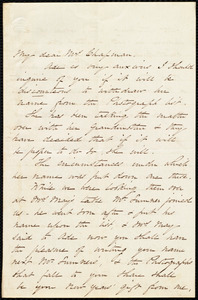 My dear Mrs Chapman,
 is very anxious I should
inquire of you if it will be
 to withdraw her
name from the Photograph list.
She has been talking the matter
over with her Grandmother & they
have decided that if it will
be proper to do so she will.
The circumstances under which
her name was put down are these
While we were looking them over
at Mrs May's table Mr Sumner joined
us. he went
name upon the list, & Mrs May
said to her now you shall have
the pleasure of writing your name
next Mr Sumner's, & the Photographs
that fall to your share shall
be your New years' gift from me.